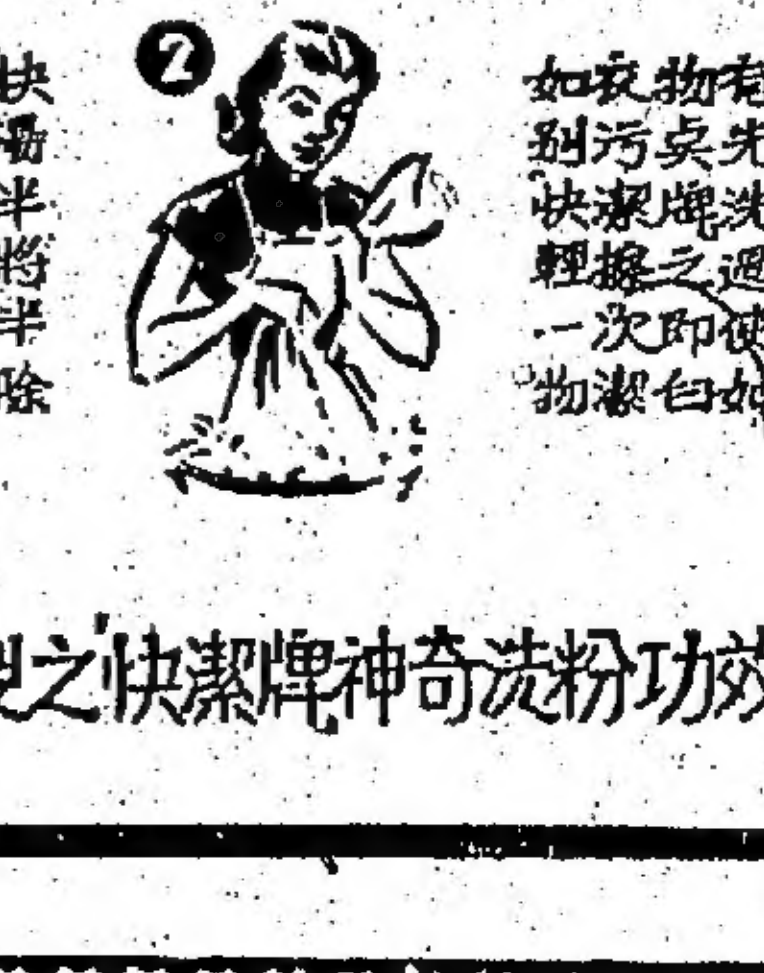 快
半
將
半
除
2
如衣物有
別污奌先
快潔牌洗
輕擦之過
一次即使
物潔白如
之快潔牌神奇洗粉功效